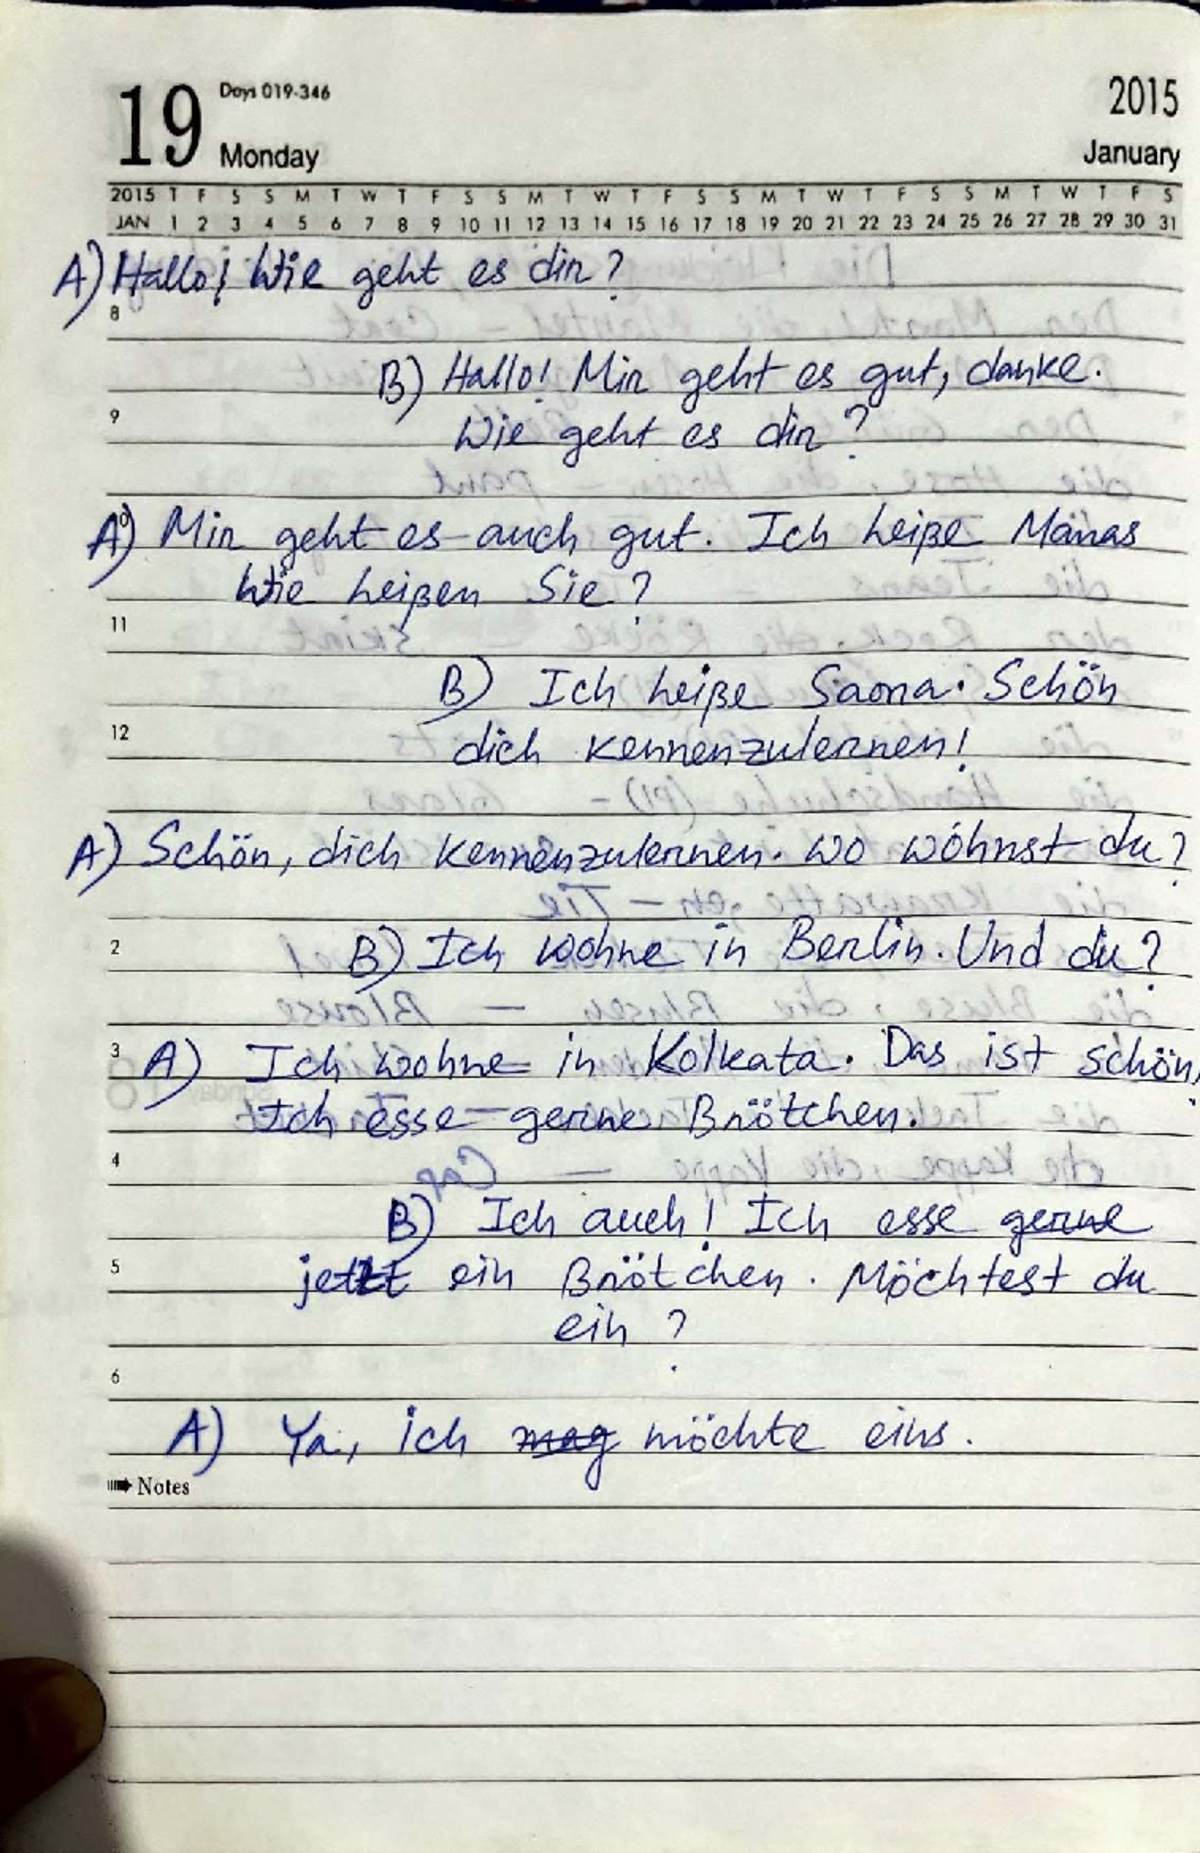 19 Days 019-346 2015
Monday January
2015 T F S S M T W T F S S M T W T F S S M T W T F S S M T W T F S
JAN 1 2 3 4 5 6 7 8 9 10 11 12 13 14 15 16 17 18 19 20 21 22 23 24 25 26 27 28 29 30 31
A) Hallo! Wie geht es dir?
8
B) Hallo! Mir geht es gut, danke.
9
Wie geht es dir?
A) Mir geht es auch gut. Ich heiße Manas
Wie heißen Sie?
11
B) Ich heiße Saona. Schön
12
dich kennenzulernen!
A) Schön, dich kennenzulernen. wo wohnst du?
2
B) Ich wohne in Berlin. Und du?
3
A) Ich wohne in Kolkata. Das ist schön,
Ich esse gerne Brötchen.
4
B) Ich auch! Ich esse gerne
5
jetzt ein Brötchen. Möchtest du
ein?
6
A) Ya, ich mag möchte eins.
Notes